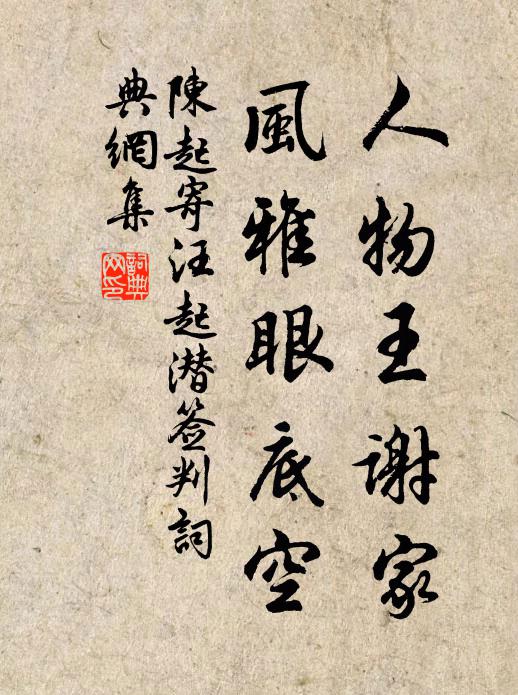 人物王謝家
風雅眼底空
陳起寄汪起潜签判詞
典網集
詞典網印